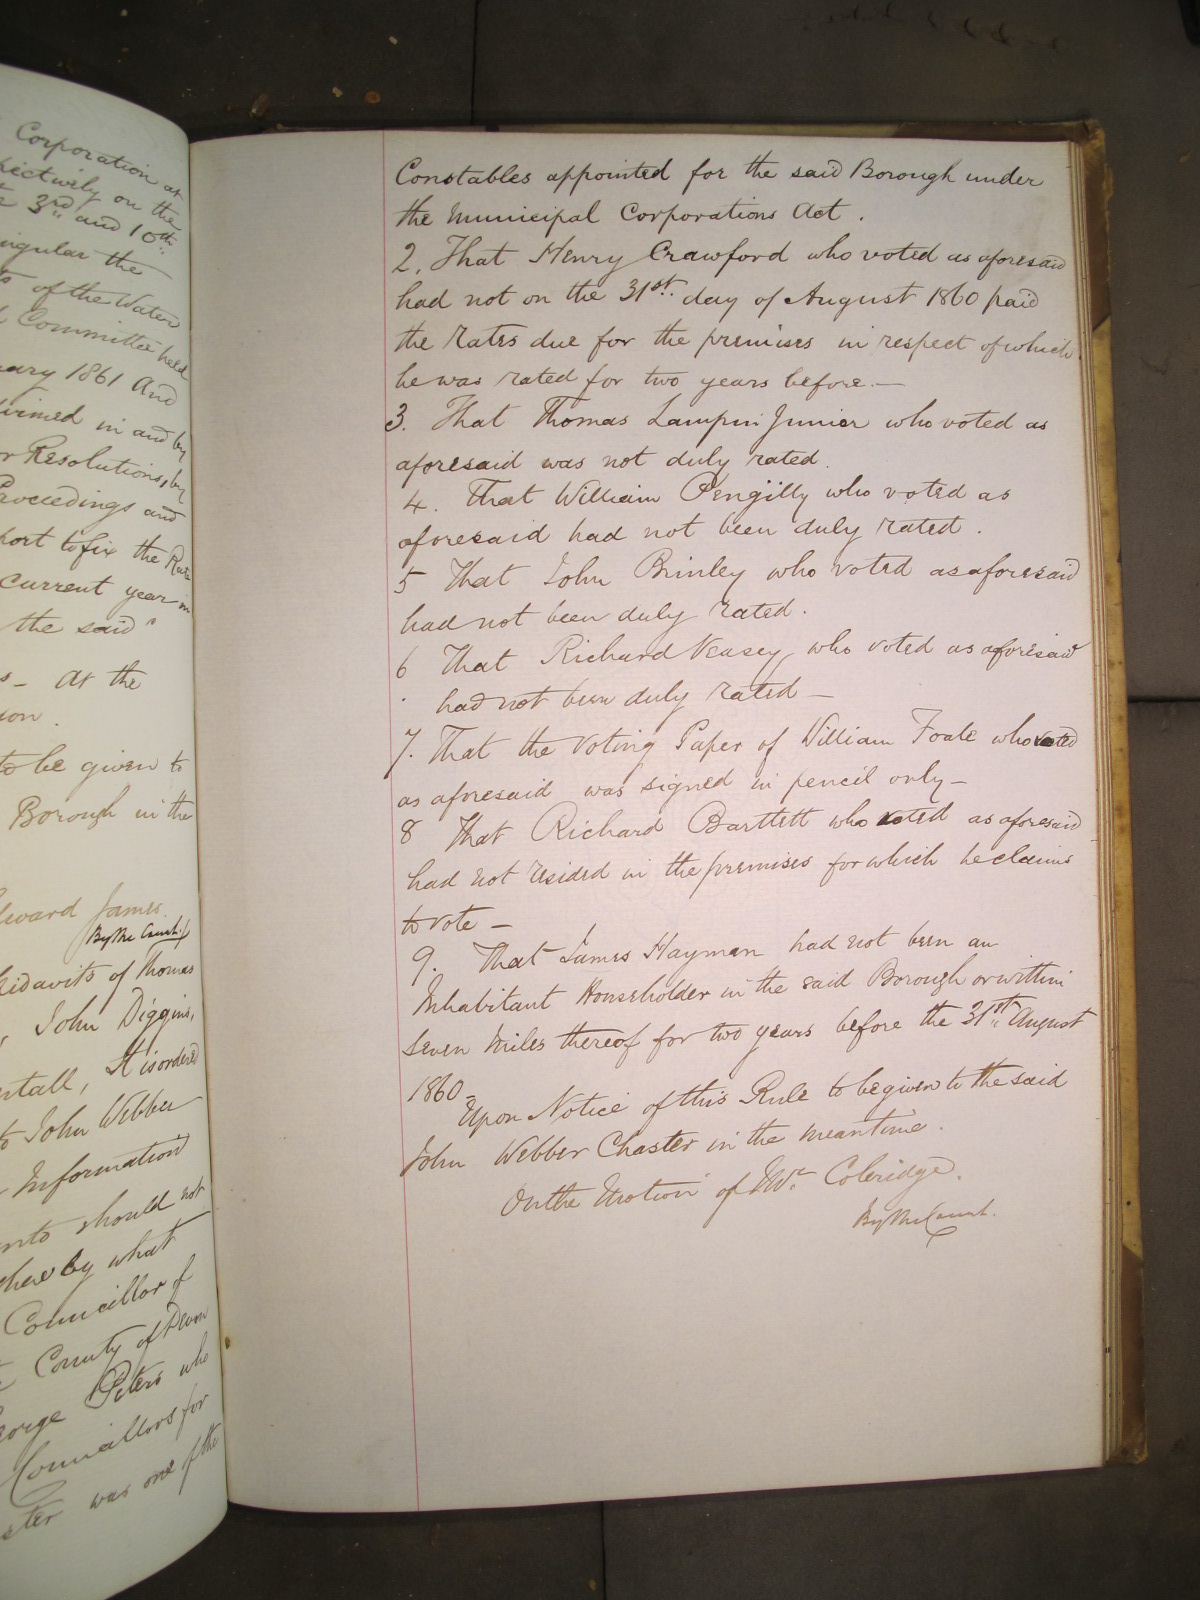 Corporation at
pectively on the
3rd and 10th
ngular the
of the Water
Committee held
ary 1861 And
firmed in and by
Resolutions, by
Proceedings and
port to fix the Rate
current year in
the said
At the
ion.
to be given to
Borough in the
Edward James.
By the Court
fidavits of Thomas
John Diggins,
ntall, It is ordered
to John Webber
Information
ents should not
shew by what
Councillor of
County of Devon
George Peters who
Councillors for
ster was one of the
Constables appointed for the said Borough under
the Municipal Corporations Act.
2. That Henry Crawford who voted as aforesaid
had not on the 31st. day of August 1860 paid
the rates due for the premises in respect of which
he was rated for two years before. —
3. That Thomas Lampin Junior who voted as
aforesaid was not duly rated.
4. That William Pengilly who voted as
aforesaid had not been duly rated.
5 That John Brinley who voted as aforesaid
had not been duly rated.
6 That Richard Veasey who voted as aforesaid
had not been duly rated —
7. That the Voting Paper of William Foale who voted
as aforesaid was signed in pencil only —
8 That Richard Bartlett who voted as aforesaid
had not resided in the premises for which he claims
to vote —
9. That James Hayman had not been an
Inhabitant Householder in the said Borough or within
seven Miles thereof for two years before the 31st August
1860 —
Upon Notice of this Rule to be given to the said
John Webber Chaster in the meantime.
On the Motion of Mr. Coleridge.
By the Court.